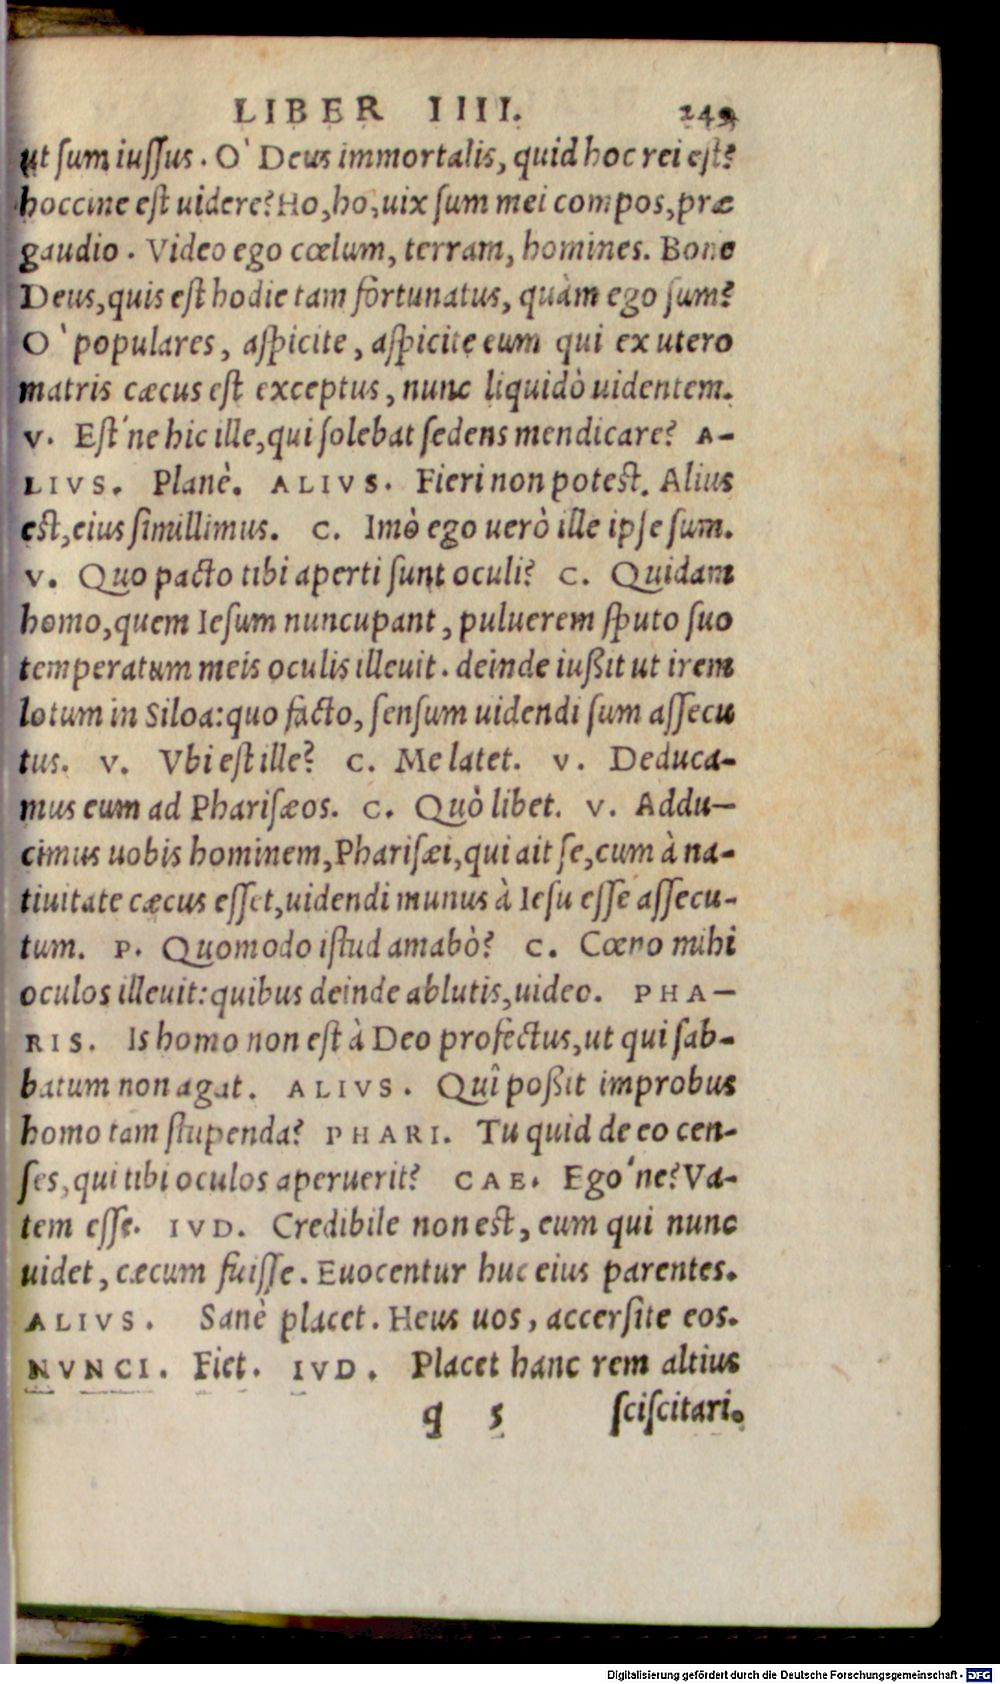 LIBER IIII. 249
ut ſum iuſſus. O` Deus immortalis, quid hoc rei eſt?
hoccine eſt uidere? Ho, ho, uix ſum mei compos, præ
gaudio. Video ego cœlum, terram, homines. Bone
Deus, quis eſt hodie tam fortunatus, quàm ego ſum?
O` populares, aſpicite, aſpicite eum qui ex utero
matris cæcus eſt exceptus, nunc liquidò uidentem.
V. Eſt'ne hic ille, qui ſolebat ſedens mendicare? A-
LIVS. Planè. ALIVS. Fieri non poteſt. Alius
eſt, eius ſimillimus. C. Imò ego uerò ille ipſe ſum.
V. Quo pacto tibi aperti ſunt oculi? C. Quidam
homo, quem Ieſum nuncupant, puluerem ſputo ſuo
temperatum meis oculis illeuit. deinde iußit ut irem
lotum in Siloa: quo facto, ſenſum uidendi ſum aſſecu
tus. V. Vbi eſt ille? C. Me latet. V. Deduca-
mus eum ad Phariſæos. C. Quò libet. V. Addu-
cimus uobis hominem, Phariſæi, qui ait ſe, cum à na-
tiuitate cæcus eſſet, uidendi munus à Ieſu eſſe aſſecu-
tum. P. Quomodo iſtud amabò? C. Cœno mihi
oculos illeuit: quibus deinde ablutis, uideo. PHA-
RIS. Is homo non eſt à Deo profectus, ut qui ſab-
batum non agat. ALIVS. Quî poßit improbus
homo tam ſtupenda? PHARI. Tu quid de eo cen-
ſes, qui tibi oculos aperuerit? CAE. Ego'ne? Va-
tem eſſe. IVD. Credibile non eſt, eum qui nunc
uidet, cæcum fuiſſe. Euocentur huc eius parentes.
ALIVS. Sanè placet. Heus uos, accerſite eos.
NVNCI. Fiet. IVD. Placet hanc rem altius
q 5 ſciſcitari.
Digitalisierung gefördert durch die Deutsche Forschungsgemeinschaft - DFG